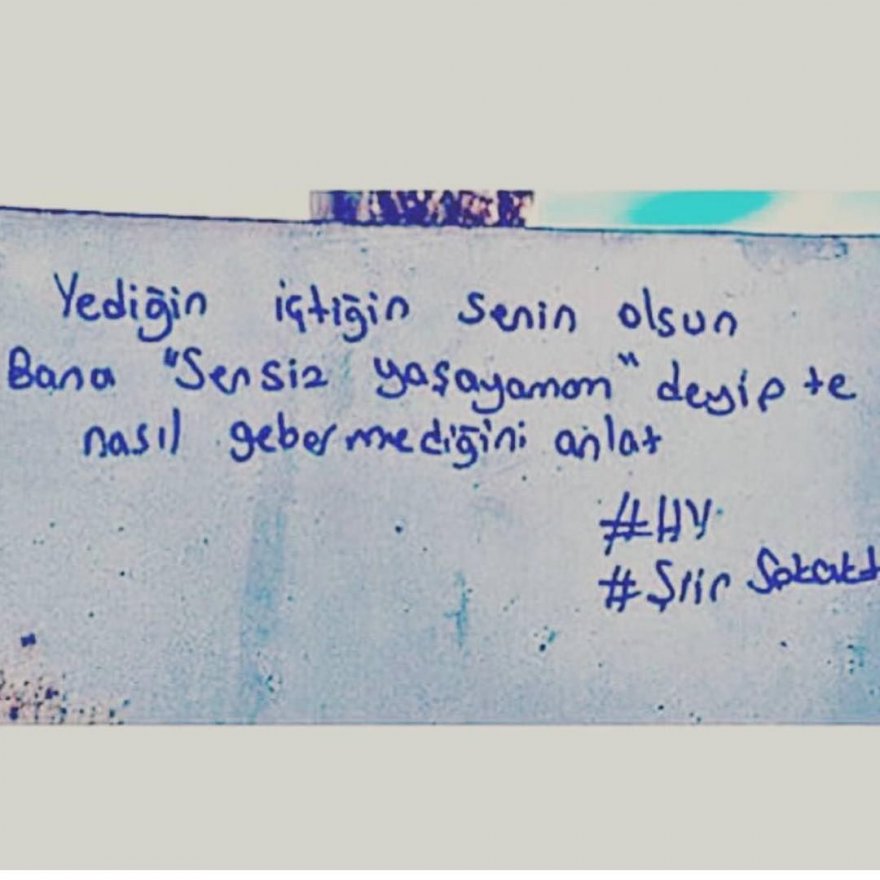 Yediğin içtiğin senin olsun
Bana "Sensiz yaşayamam" deyip te
nasıl gebermediğini anlat
#HY
#Şiir Sokakt